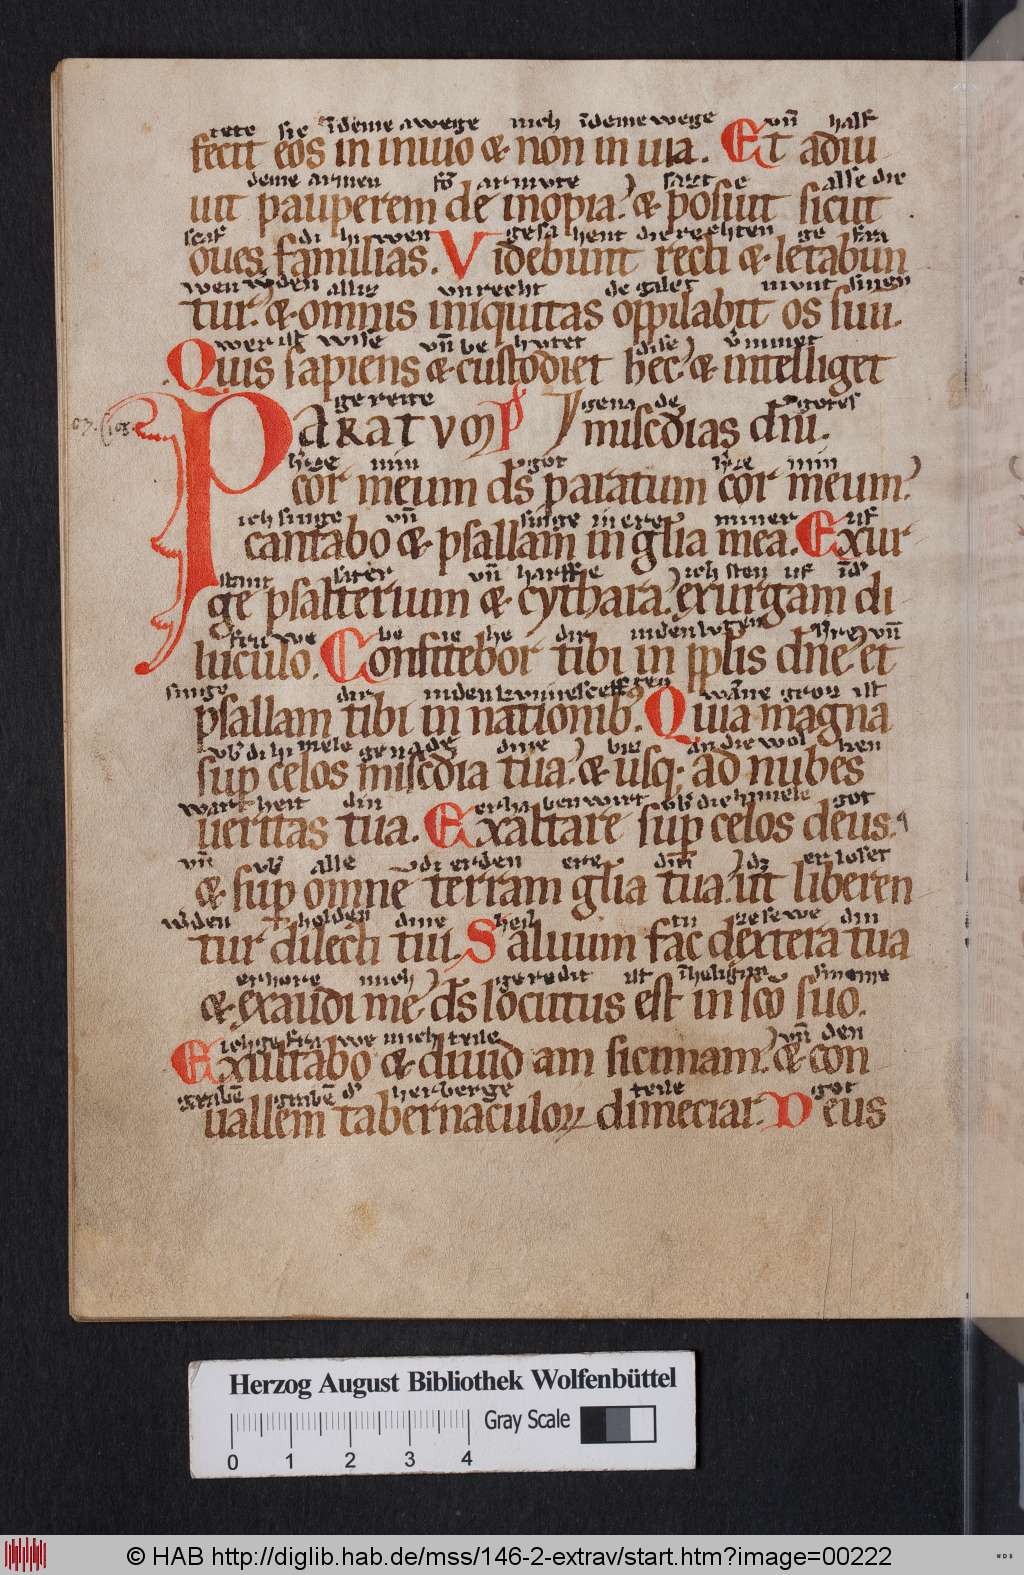 tete sie īdeme awege mich īdeme wege vn̄ half
fecit eos in inuio & non in uia. Et adiu
deme armen fō armvte satzt e alse die
uit pauperem de inopia: & posuit sicut
scaf di hiwen gesa hent die rechten ge fra
oues familias. Videbunt recti & letabun
wen wᵈden allig vnrecht de galet munt sinen
tur: & omnis iniquitas oppilabit os suu.
wer ist wise vn̄ be hvtet dise v̄nimet
Quis sapiens & custodiet hec: & intelliget
gereite gena de gotes
PARATVM misc̄dias dn̄i.
h̄ze min got h̄ze min
cor meum ds̄ paratum cor meum:
ich singe vn̄ singe in ere miner uf
cantabo & psallam in gl̄ia mea. Exur
stant salter vn̄ harffe ich sten uf īdᵉ
ge psalterium & cythara: exurgam di
fru we be ie he dir inden luten h̄re vn̄
luculo. Confitebor tibi in pp̄lis dn̄e: et
singe dir inden kvnnescesten wāne groz ist
psallam tibi in nationib. Quia magna
vb̄ di himele genade dine biz an die wol ken
sup celos misc̄dia tua: & usq; ad nubes
warheit din erha ben wirt vb̄ die himele got
ueritas tua. Exaltare sup celos deus
vn̄ vb̄ alle di erden ere din̄ dz erloset
& sup omnē terram gl̄ia tua: ut liberen
wᵈden holden dine heil tu zesewe din
tur dilecti tui. Saluum fac dextera tua
erhore mich got geredit ist īheligin sineme
& exaudi me: ds̄ locutus est in sc̄o suo.
ich ge frawe mich teile vn̄ den
Exultabo & diuid am sicimam: & con
gruben dᵉ herberge teile got
uallem tabernaculoꝝ dimeciar. Deus
Herzog August Bibliothek Wolfenbüttel
Gray Scale
0 1 2 3 4
© HAB http://diglib.hab.de/mss/146-2-extrav/start.htm?image=00222